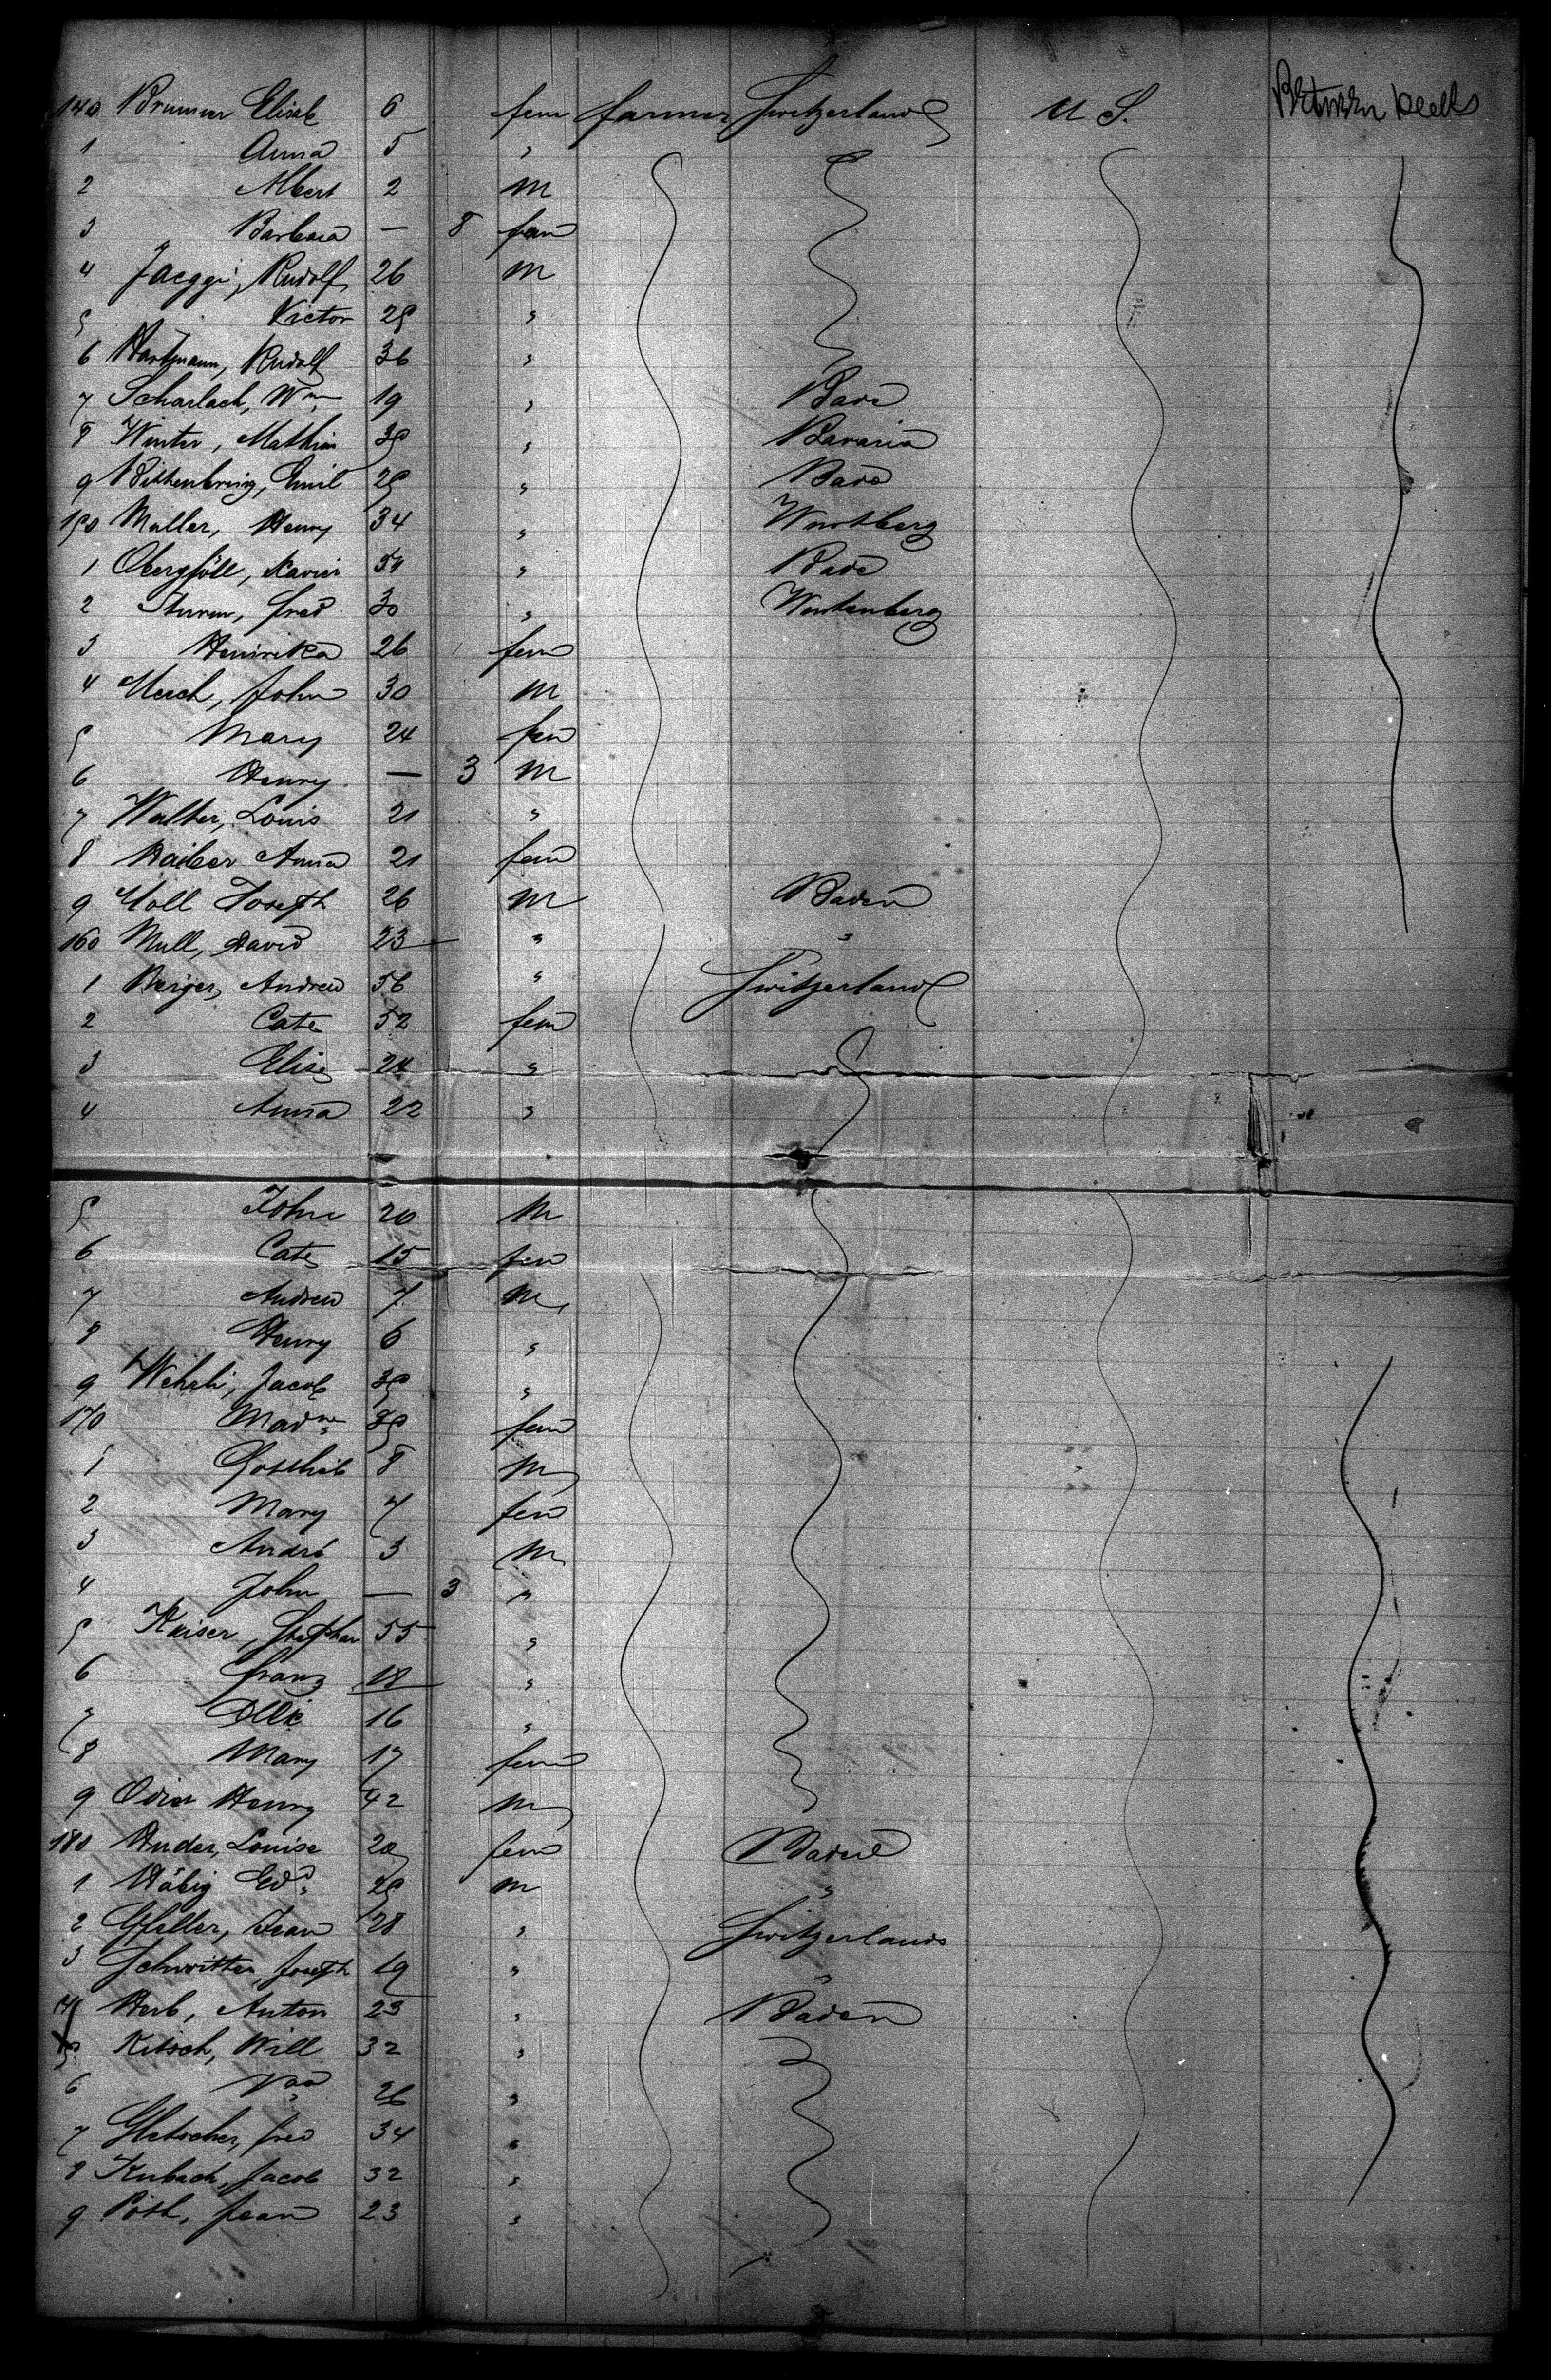 140 Brunner Elisab 6 fem farmer Switzerland U S. Between decks
1 Anna 5 "
2 Albert 2 m
3 Barbara — 8 fem
4 Jaeggi, Rudolf 26 m
5 Victor 25 "
6 Hartmann, Rudolf 36 "
7 Scharlach, Wm 19 " Bade
8 Winter, Mathias 35 " Bavaria
9 Emil 25 " Bade
150 Muller, Henry 34 " Wurtberg
1 Obergföll, Xavier 54 " Bade
2 Sturm, fred 30 " Wurtenberg
3 Henrika 26 fem
4 John 30 m
5 Mary 24 fem
6 Henry — 3 m
7 Walter, Louis 21 "
8 Haiber Anna 21 fem
9 Moll Joseph 26 m Baden
160 Mull, David 23 " "
1 Berger, Andrew 56 " Switzerland
2 Cate 52 fem
3 Elise 24 "
4 Anna 22 "
5 John 20 m
6 Cate 15 fem
7 Andrew 7 m
8 Henry 6 "
9 Wehrli, Jacob 35 "
170 Madme 35 fem
1 Gottlieb 8 m
2 Mary 7 fem
3 André 3 m
4 John — 3 "
5 Kaiser, Stephan 55 "
6 franz 18 "
7 16 "
8 Mary 17 fem
9 Odier Henry 42 m
180 Huder, Louise 20 fem Baden
1 Häbig Edd 25 m "
2 Gfeller, Jean 28 " Switzerland
3 Schwitter, Joseph 19 " "
4 Herb, Anton 23 " Baden
5 Kitsch, Will 32 "
6 26 "
7 Gletscher, fred 34 "
8 Kubach, Jacob 32 "
9 Poth, Jean 23 "